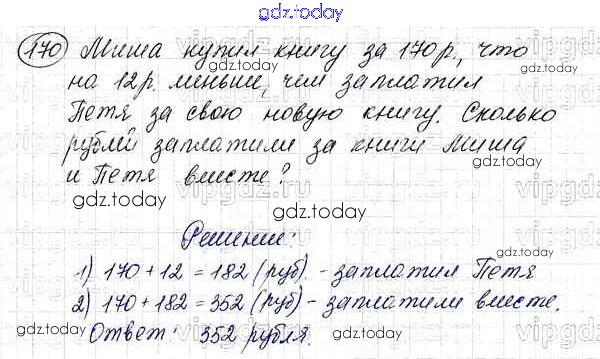 gdz.today
170 Миша купил книгу за 170 р., что
на 12 р. меньше, чем заплатил
Петя за свою новую книгу. Сколько
рублей заплатили за книги Миша
и Петя вместе?
gdz.today
Решение:
1) 170 + 12 = 182 (руб) - заплатил Петя
2) 170 + 182 = 352 (руб) - заплатили вместе.
Ответ: 352 рубля.
gdz.today